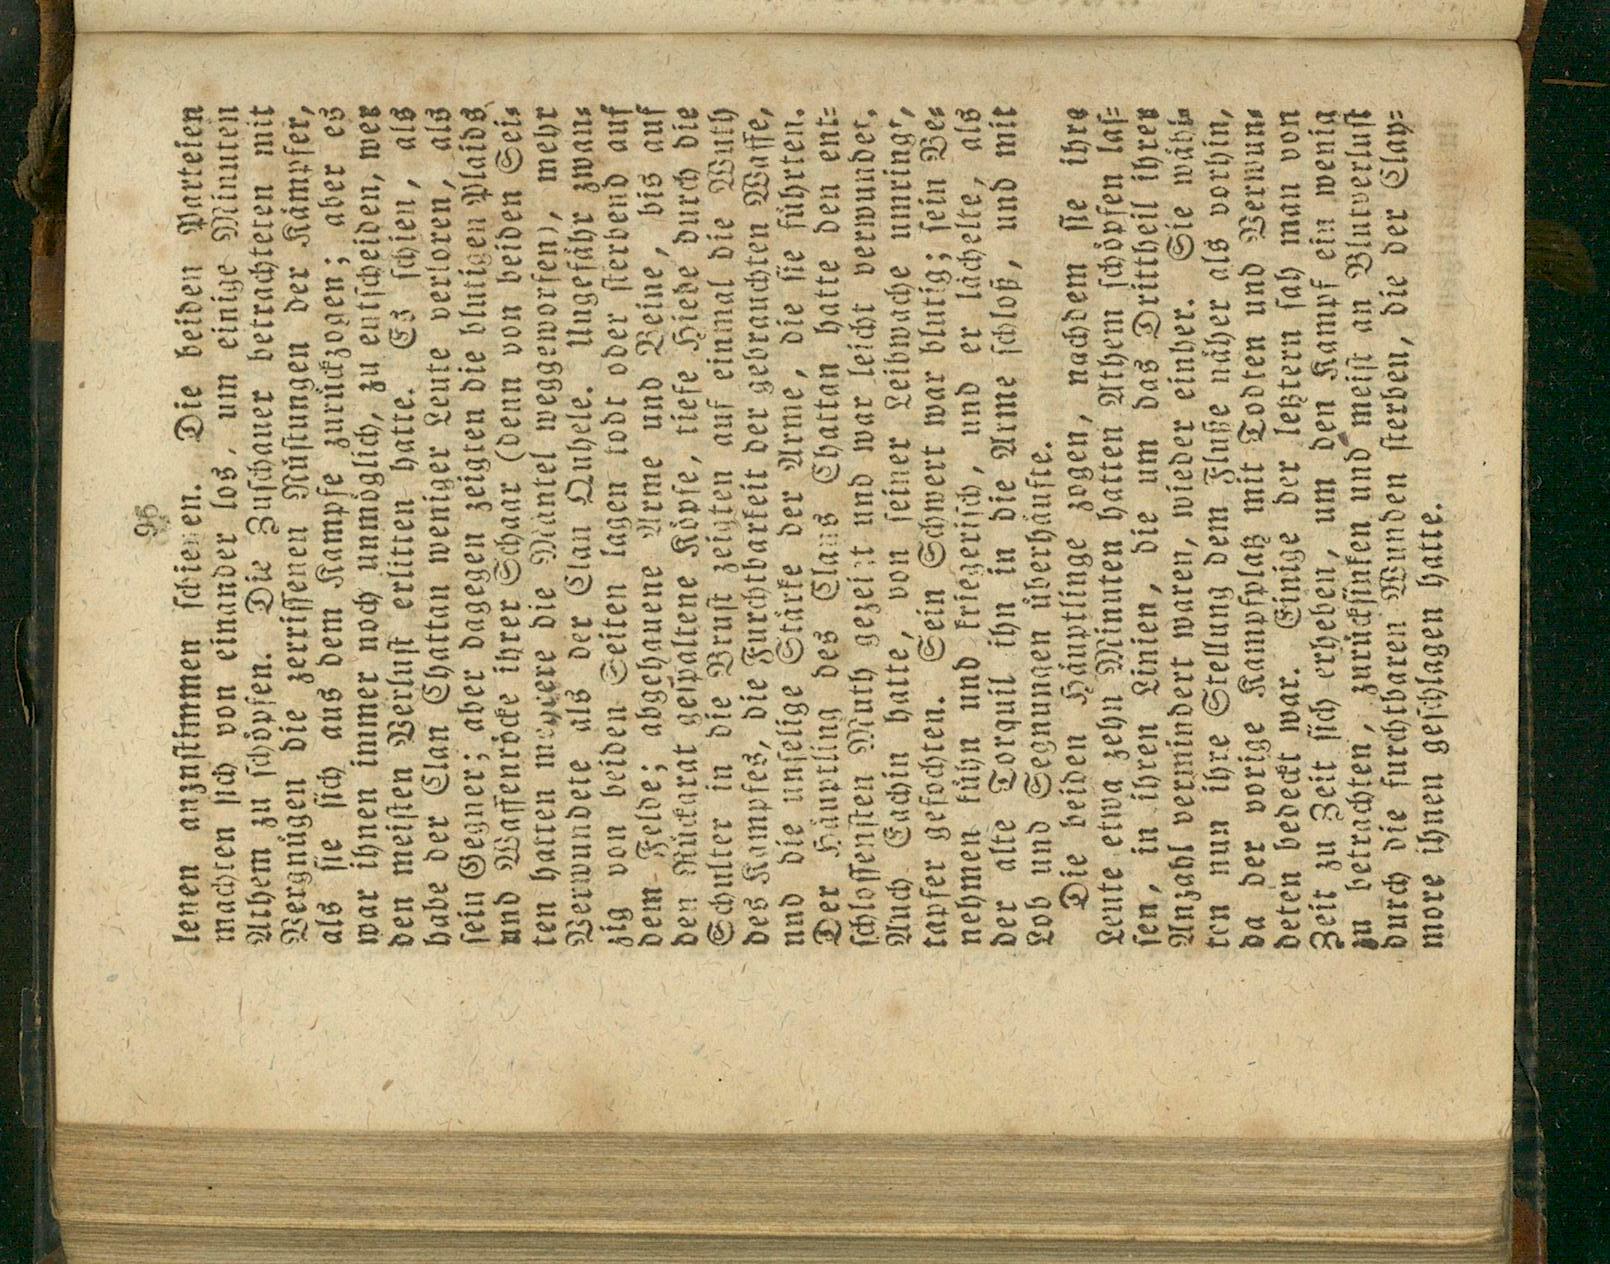 96
lenen anzustimmen schienen. Die beiden Parteien
machten sich von einander los, um einige Minuten
Athem zu schöpfen. Die Zuschauer betrachteten mit
Vergnügen die zerrissenen Rüstungen der Kämpfer,
als sie sich aus dem Kampfe zurückzogen; aber es
war ihnen immer noch unmöglich, zu entscheiden, wer
den meisten Verlust erlitten hatte. Es schien, als
habe der Clan Chattan weniger Leute verloren, als
sein Gegner; aber dagegen zeigten die blutigen Plaids
und Waffenröcke ihrer Schaar (denn von beiden Sei-
ten hatten mehrere die Mäntel weggeworfen), mehr
Verwundete als der Clan Quhele. Ungefähr zwan-
zig von beiden Seiten lagen todt oder sterbend auf
dem Felde; abgehauene Arme und Beine, bis auf
den Rückgrat gespaltene Köpfe, tiefe Hiebe durch die
Schulter in die Brust zeigten auf einmal die Wuth
des Kampfes, die Furchtbarkeit der gebrauchten Waffe,
und die unselige Stärke der Arme, die sie führten.
Der Häuptling des Clans Chattan hatte den ent-
schlossensten Muth gezeigt und war leicht verwundet.
Auch Eachin hatte, von seiner Leibwache umringt,
tapfer gefochten. Sein Schwert war blutig; sein Be-
nehmen kühn und kriegerisch, und er lächelte, als
der alte Torquil ihn in die Arme schloß, und mit
Lob und Segnungen überhäufte.
Die beiden Häuptlinge zogen, nachdem sie ihre
Leute etwa zehn Minuten hatten Athem schöpfen las-
sen, in ihren Linien, die um das Drittheil ihrer
Anzahl vermindert waren, wieder einher. Sie wähl-
ten nun ihre Stellung dem Fluße näher als vorhin,
da der vorige Kampfplatz mit Todten und Verwun-
deten bedeckt war. Einige der letztern sah man von
Zeit zu Zeit sich erheben, um den Kampf ein wenig
zu betrachten, zurücksinken und meist an Blutverlust
durch die furchtbaren Wunden sterben, die der Clay-
more ihnen geschlagen hatte.